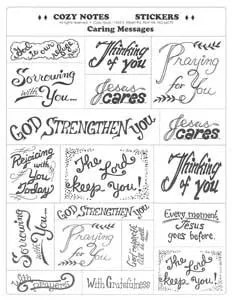 COZY NOTES STICKERS
Caring Messages
God is our refuge
Thinking
of you
Praying
for
You
Sorrowing
with
You...
Jesus
cares
GOD STRENGTHEN you
Jesus
cares
Rejoicing
with you
Today
The Lord
keep You!
Thinking
of you
GOD STRENGTHEN you
Every moment,
Jesus
goes before.
Sorrowing
with
You...
Praying
for
You
The Lord
keep You!
With prayers
With Gratefulness